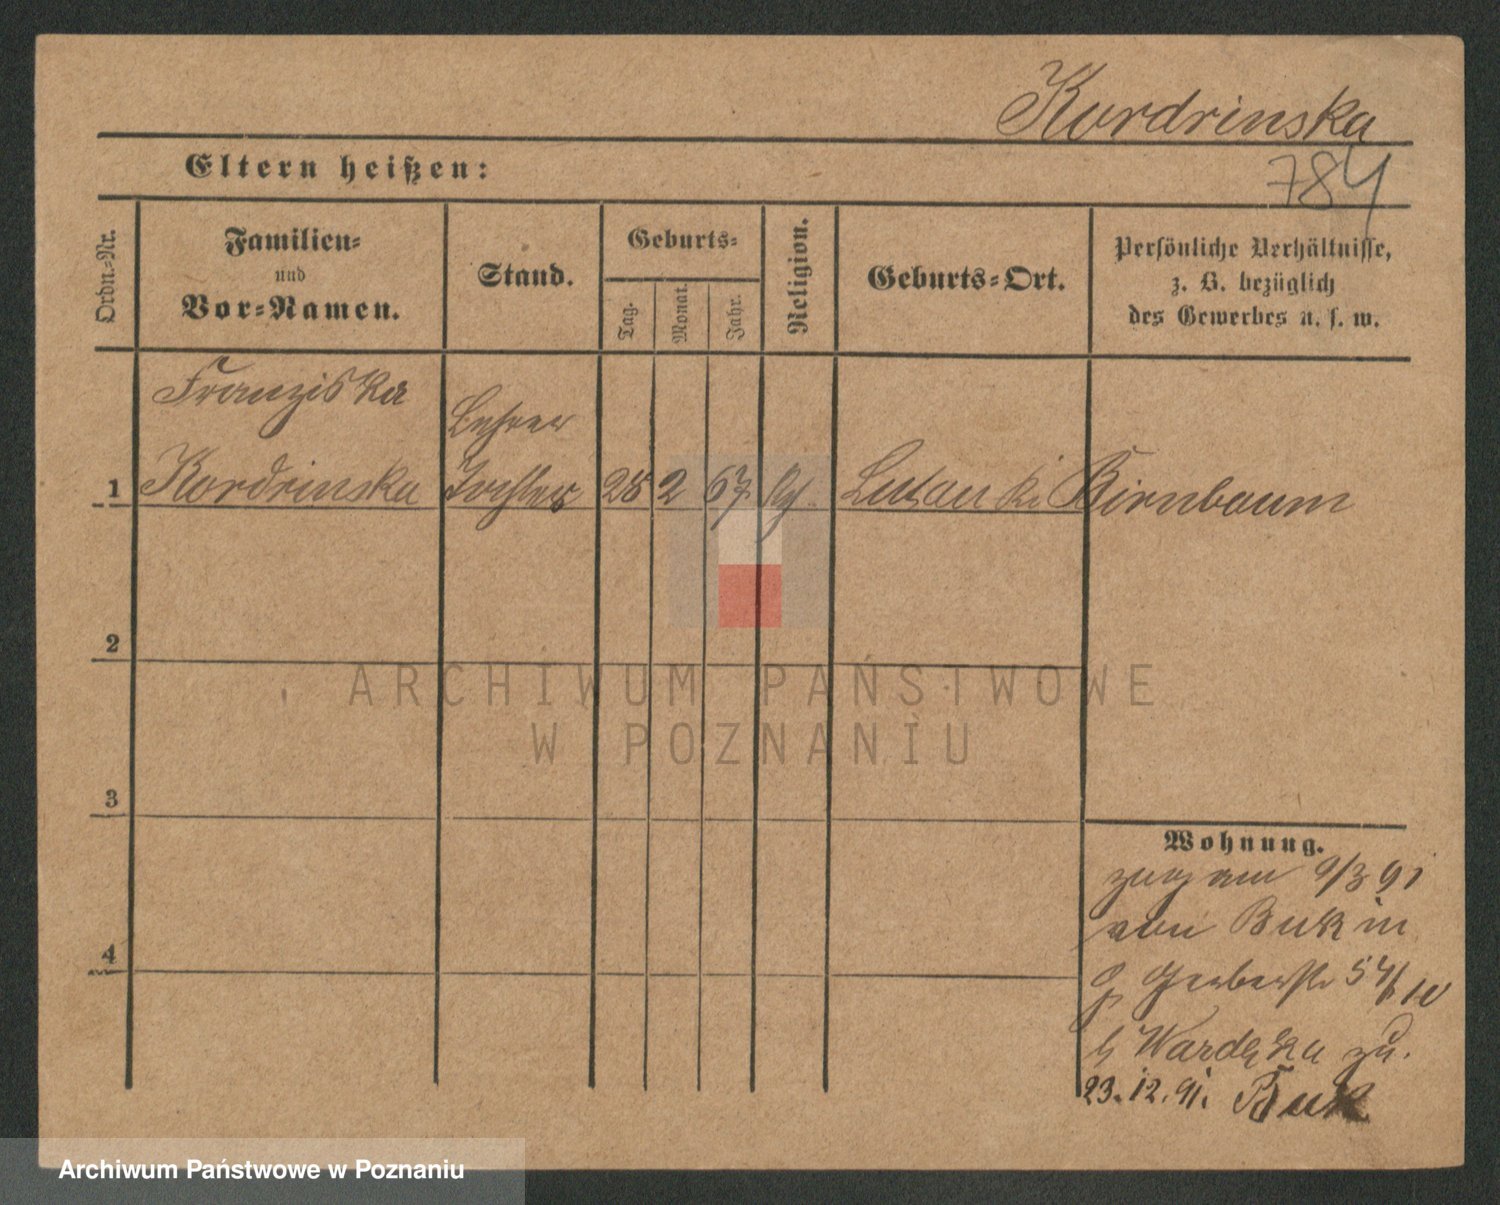 Kordrinska
784
Eltern heißen:
Ordn.-Nr.
Familien-
und
Vor-Namen.
Stand.
Geburts-
Tag.
Monat.
Jahr.
Religion.
Geburts-Ort.
Persönliche Verhältnisse,
z. B. bezüglich
des Gewerbes u. s. w.
Franziska
Lehrer
1 Kordrinska Tochter 28 2 67 Birnbaum
2
ARCHIWUM PAŃSTWOWE
W POZNANIU
3
Wohnung.
zug am 9/3 91
von Buk in
Gerberstr 54/
4
Wardezka zu.
23.12.91. Buk
Archiwum Państwowe w Poznaniu